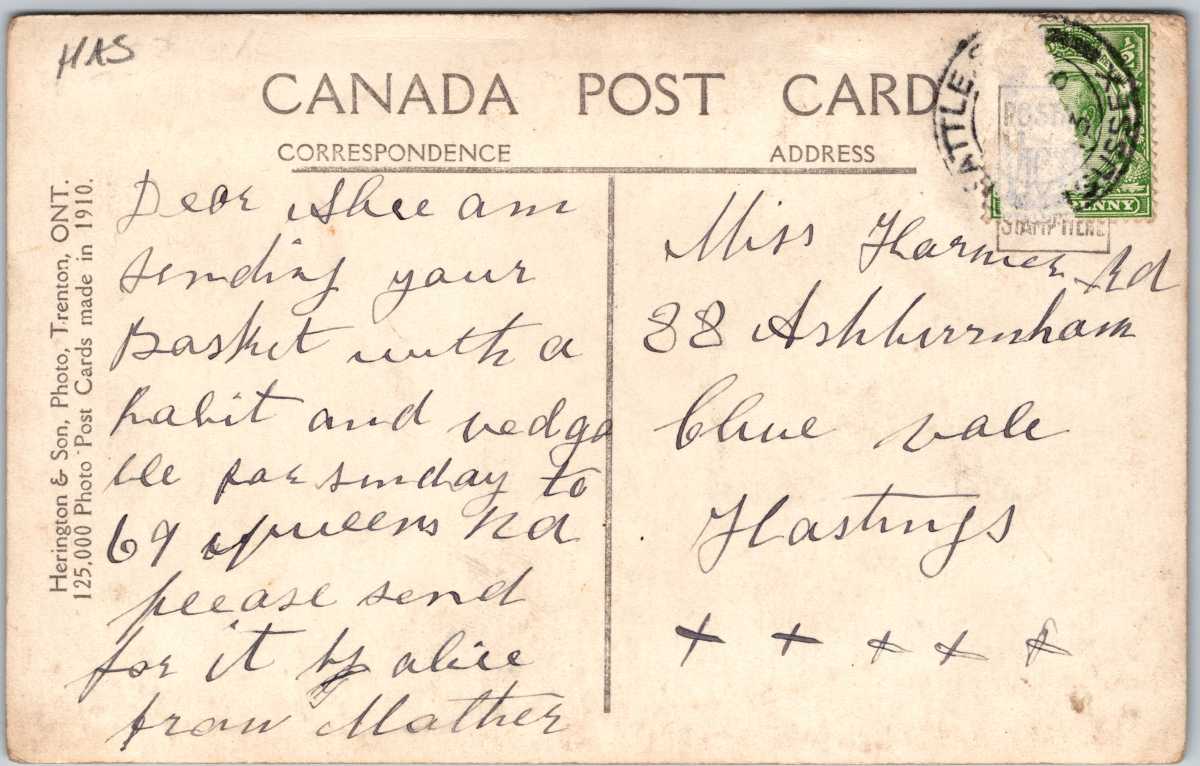 HAS
CANADA POST CARD
CORRESPONDENCE
ADDRESS
Herington & Son, Photo, Trenton, ONT.
125,000 Photo Post Cards made in 1910.
Dear am
sending your
Basket with a
habit and vedga
ble for sunday to
69 queens Rd
please send
for it by alice
from Mother
Miss Harmer
88 Ashburnham Rd
Clive vale
Hastings
+ + + + +
BATTLE
SUSSEX
½
PENNY
POSTAGE
STAMP HERE